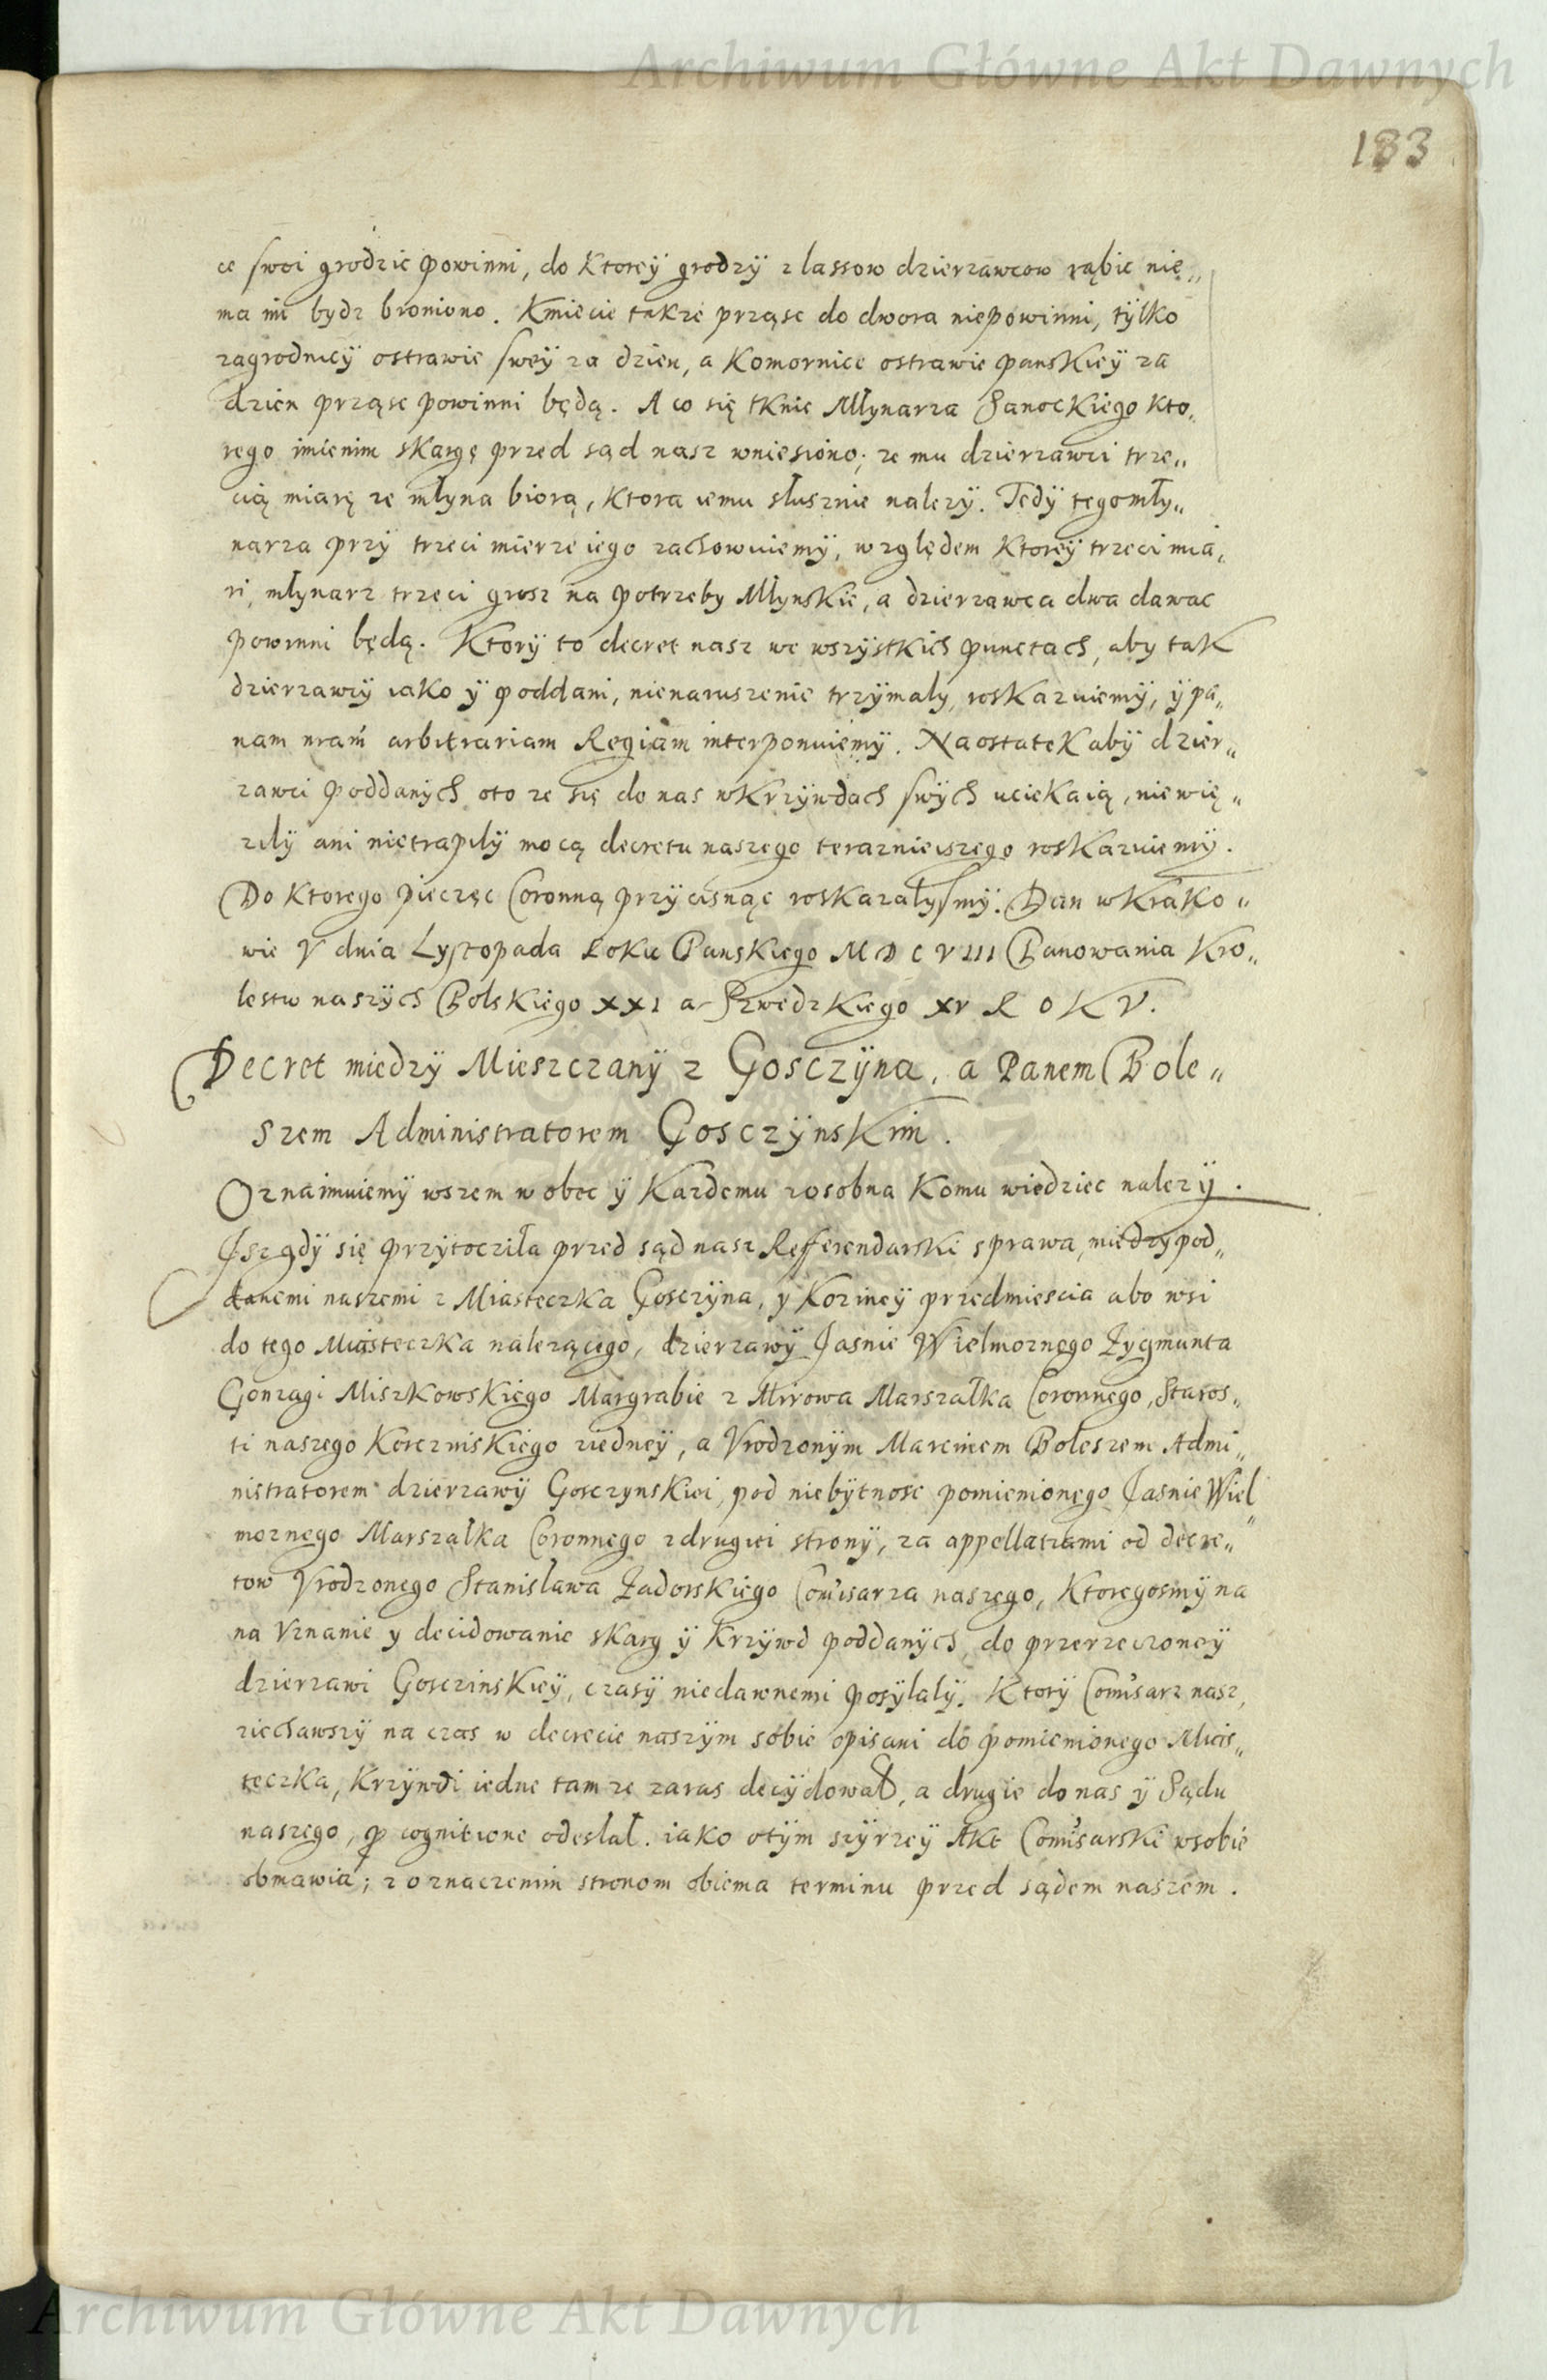 Archiwum Główne Akt Dawnych
183
ce swoi grodzic powinni, do ktorey grodzy z lassow dzierzawcow rąbic nie„
ma im bydz broniono. Kmiecie takze prząsc do dwora niepowinni, tylko
zagrodnicy ostrawie swey za dzien, a Komornice ostrawie panskiey za
dzien prząsc powinni będą. A co się tknie Młynarza Sanockiego kto„
rego imienim skargę przed sąd nasz wniesiono, ze mu dzierzawci trze„
cią miarę ze młyna biorą, ktora iemu słusznie nalezy. Tedy tego mły„
narza przy trzeci mierze iego zachowuiemy, względem ktorey trzeci mia„
ri, młynarz trzeci grosz na potrzeby Młynskie, a dzierzawca dwa dawac
powinni będą. Ktory to decret nasz we wszystkich punctach, aby tak
dzierzawcy iako y poddani, nienaruszenie trzymaly, roskazuiemy, y pæ„
nam nram arbitrariam Regiam interponuiemy. Naostatek aby dzier„
zawci poddanych oto ze się do nas w krzywdach swych uciekaią, niewię„
zily ani nietrapily mocą decretu naszego terazniejszego roskazuiemy.
Do ktorego pieczęc Coronną przycisnąc roskazałysmy. Dan w Krako„
wie V dnia Lystopada Roku Panskiego MDCVIII Panowania Kro„
lestw naszych Polskiego XXI a Szwedzkiego XV ROKV.
Decret miedzy Mieszczany z Gosczyna, a Panem Bole„
szem Administratorem Gosczynskim.
Oznaimuiemy wszem wobec y kazdemu zosobna komu wiedziec nalezy.
Isz gdy się przytoczila przed sąd nasz Refferendarski sprawa, miedzy pod„
danemi naszemi z Miasteczka Gosczyna, y Kozincy przedmiescia abo wsi
do tego Miasteczka nalezącego, dzierzawy Jasnie Wielmoznego Zygmunta
Gonzagi Miszkowskiego Margrabie z Mirowa Marszałka Coronnego, Staros„
ti naszego Korczinskiego ziedney, a Vrodzonym Marcinem Boleszem Admi„
nistratorem dzierzawy Gosczynskiei, pod niebytnosc pomienionego Jasnie Wiel„
moznego Marszałka Coronnego zdrugiei strony, za appellatiami od decre„
tow Vrodzonego Stanisława Zadorskiego Comisarza naszego, Ktoregosmy na
na Vznanie y decidowanie skarg y krzywd poddanych, do przerzeczoney
dzierzawi Gosczinskiey, czasy niedawnemi posylaly. Ktory Comisarz nasz,
ziechawszy na czas w decrecie naszym sobie opisani do pomienionego Mias„
teczka, krzywdi iedne tamze zaras decydował, a drugie do nas y Sądu
naszego, pro cognitione odesłał. iako otym szyrzey Akt Comisarski wsobie
obmawia; z oznaczenim stronom obiema terminu przed sądem naszem.
Archiwum Główne Akt Dawnych